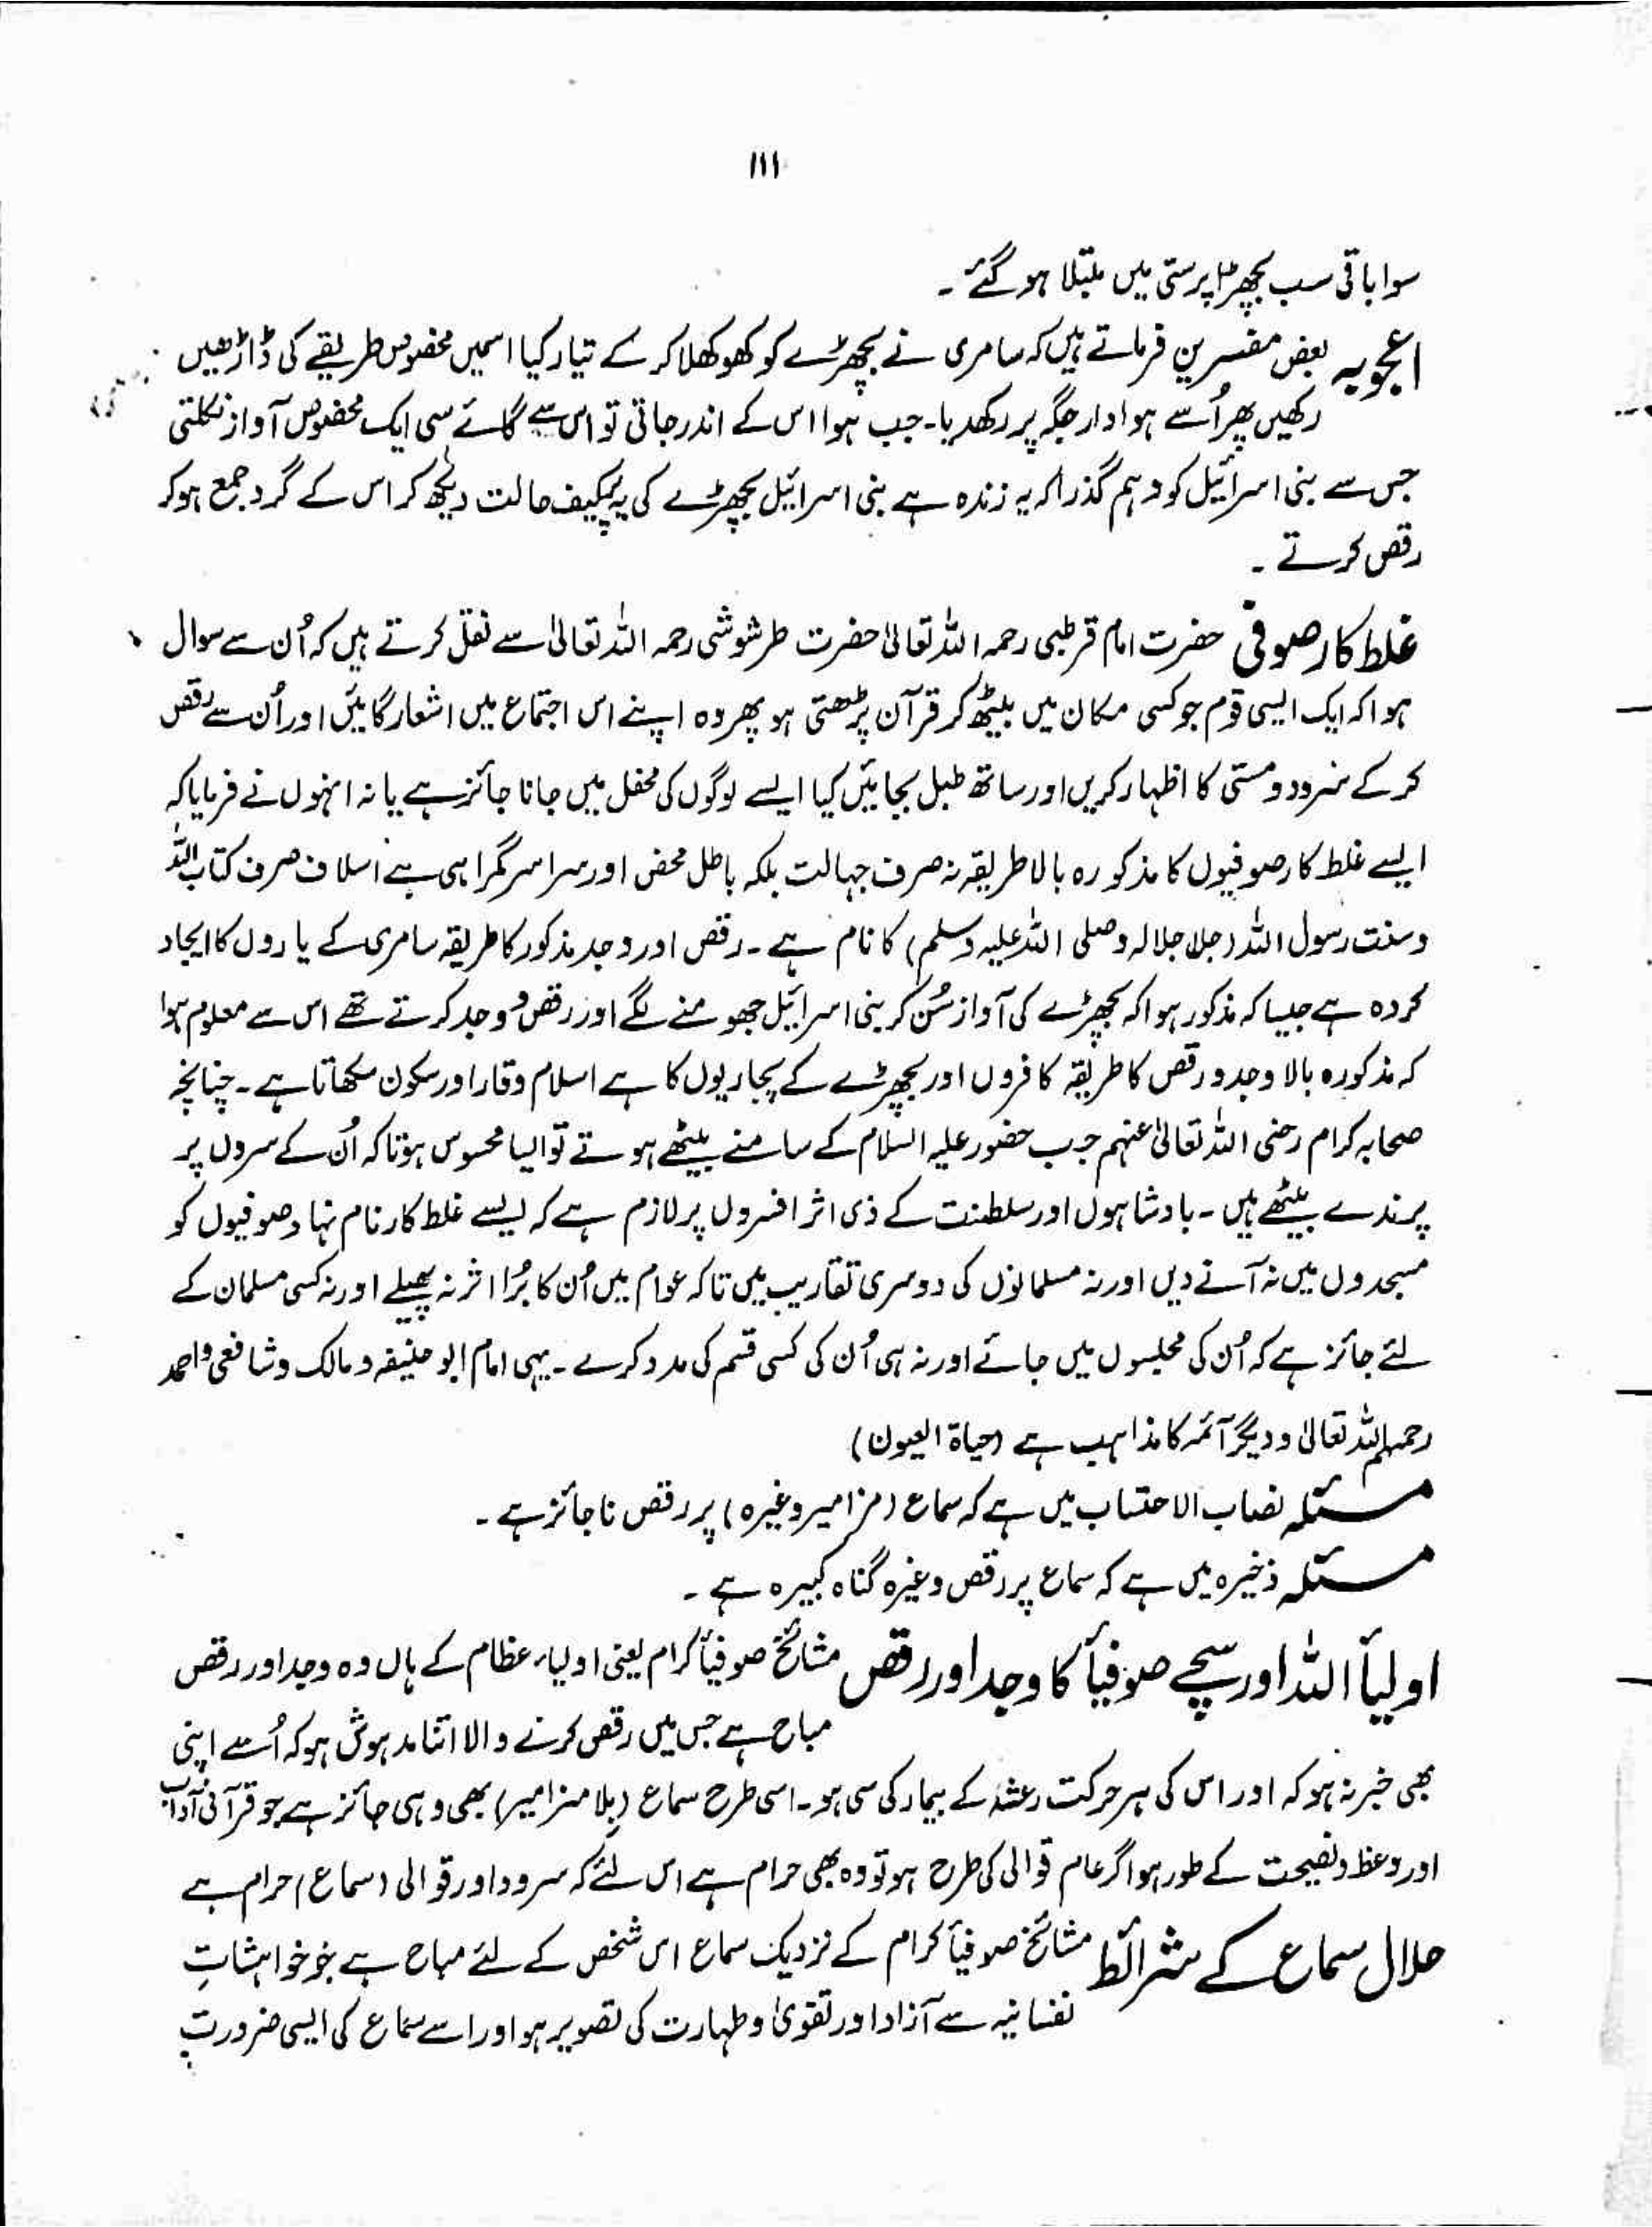 ۱۱۱
سوا باقی سب بچھڑا پرستی میں مبتلا ہو گئے ۔
اعجوبہ بعض مفسرین فرماتے ہیں کہ سامری نے بچھڑے کو کھوکھلا کر کے تیار کیا اسمیں مخصوص طریقے کی ڈاڑھیں
رکھیں پھر اُسے ہوادار جگہ پر رکھدیا ۔ جب ہوا اس کے اندر جاتی تو اس سے گائے سی ایک مخصوص آواز نکلتی
جس سے بنی اسرائیل کو وہم گذرا کہ یہ زندہ ہے بنی اسرائیل بچھڑے کی یہ پُرکیف حالت دیکھ کر اس کے گرد جمع ہو کر
رقص کرتے ۔
غلط کار صوفی حضرت امام قرطبی رحمہ اللہ تعالیٰ حضرت طرشوشی رحمہ اللہ تعالیٰ سے نقل کرتے ہیں کہ اُن سے سوال
ہوا کہ ایک ایسی قوم جو کسی مکان میں بیٹھ کر قرآن پڑھتی ہو پھر وہ اپنے اس اجتماع میں اشعار گائیں اور اُن سے رقص
کر کے سرود و مستی کا اظہار کریں اور ساتھ طبل بجائیں کیا ایسے لوگوں کی محفل میں جانا جائز ہے یا نہ انہوں نے فرمایا کہ
ایسے غلط کار صوفیوں کا مذکورہ بالا طریقہ نہ صرف جہالت بلکہ باطل محض اور سراسر گمراہی ہے اسلاف صرف کتاب اللہ
و سنت رسول اللہ (جلا جلالہ وصلی اللہ علیہ وسلم) کا نام ہے ۔ رقص اور وجد مذکور کا طریقہ سامری کے یاروں کا ایجاد
کردہ ہے جیسا کہ مذکور ہوا کہ بچھڑے کی آواز سُن کر بنی اسرائیل جھومنے لگے اور رقص و وجد کرتے تھے اس سے معلوم ہوا
کہ مذکورہ بالا وجد و رقص کا طریقہ کافروں اور بچھڑے کے پجاریوں کا ہے اسلام وقار اور سکون سکھاتا ہے ۔ چنانچہ
صحابہ کرام رضی اللہ تعالیٰ عنہم جب حضور علیہ السلام کے سامنے بیٹھے ہوتے تو ایسا محسوس ہوتا کہ اُن کے سروں پر
پرندے بیٹھے ہیں ۔ بادشاہوں اور سلطنت کے ذی اثر افسروں پر لازم ہے کہ ایسے غلط کار نام نہاد صوفیوں کو
مسجدوں میں نہ آنے دیں اور نہ مسلمانوں کی دوسری تقاریب میں تاکہ عوام میں اُن کا بُرا اثر نہ پھیلے اور نہ کسی مسلمان کے
لئے جائز ہے کہ اُن کی مجلسوں میں جائے اور نہ ہی اُن کی کسی قسم کی مدد کرے ۔ یہی امام ابو حنیفہ و مالک و شافعی و احمد
رحمہم اللہ تعالیٰ و دیگر آئمہ کا مذاہب ہے (حیاۃ العیون)
مسئلہ نصاب الاحتساب میں ہے کہ سماع (مزامیر وغیرہ) پر رقص ناجائز ہے ۔
مسئلہ ذخیرہ میں ہے کہ سماع پر رقص وغیرہ گناہ کبیرہ ہے ۔
اولیأ اللہ اور سچے صوفیأ کا وجد اور رقص مشائخ صوفیأ کرام یعنی اولیاء عظام کے ہاں وہ وجد اور رقص
مباح ہے جس میں رقص کرنے والا اتنا مدہوش ہو کہ اُسے اپنی
بھی خبر نہ ہو کہ اور اس کی ہر حرکت رعشہ کے بیمار کی سی ہو ۔ اسی طرح سماع (بلا مزامیر) بھی وہی جائز ہے جو قرآنی آداب
اور وعظ و نصیحت کے طور ہو اگر عام قوالی کی طرح ہو تو وہ بھی حرام ہے اس لئے کہ سرود اور قوالی (سماع) حرام ہے
حلال سماع کے شرائط مشائخ صوفیأ کرام کے نزدیک سماع اس شخص کے لئے مباح ہے جو خواہشاتِ
نفسانیہ سے آزاد اور تقویٰ و طہارت کی تصویر ہو اور اسے سماع کی ایسی ضرورت